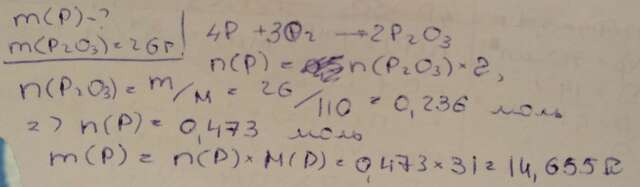 m(P)-?
m(P₂O₃)=26г
4P + 3O₂ → 2P₂O₃
n(P) = n(P₂O₃)×2,
n(P₂O₃) = m/M = 26/110 = 0,236 моль
=> n(P) = 0,473 моль
m(P) = n(P)×M(P) = 0,473×31 = 14,655г